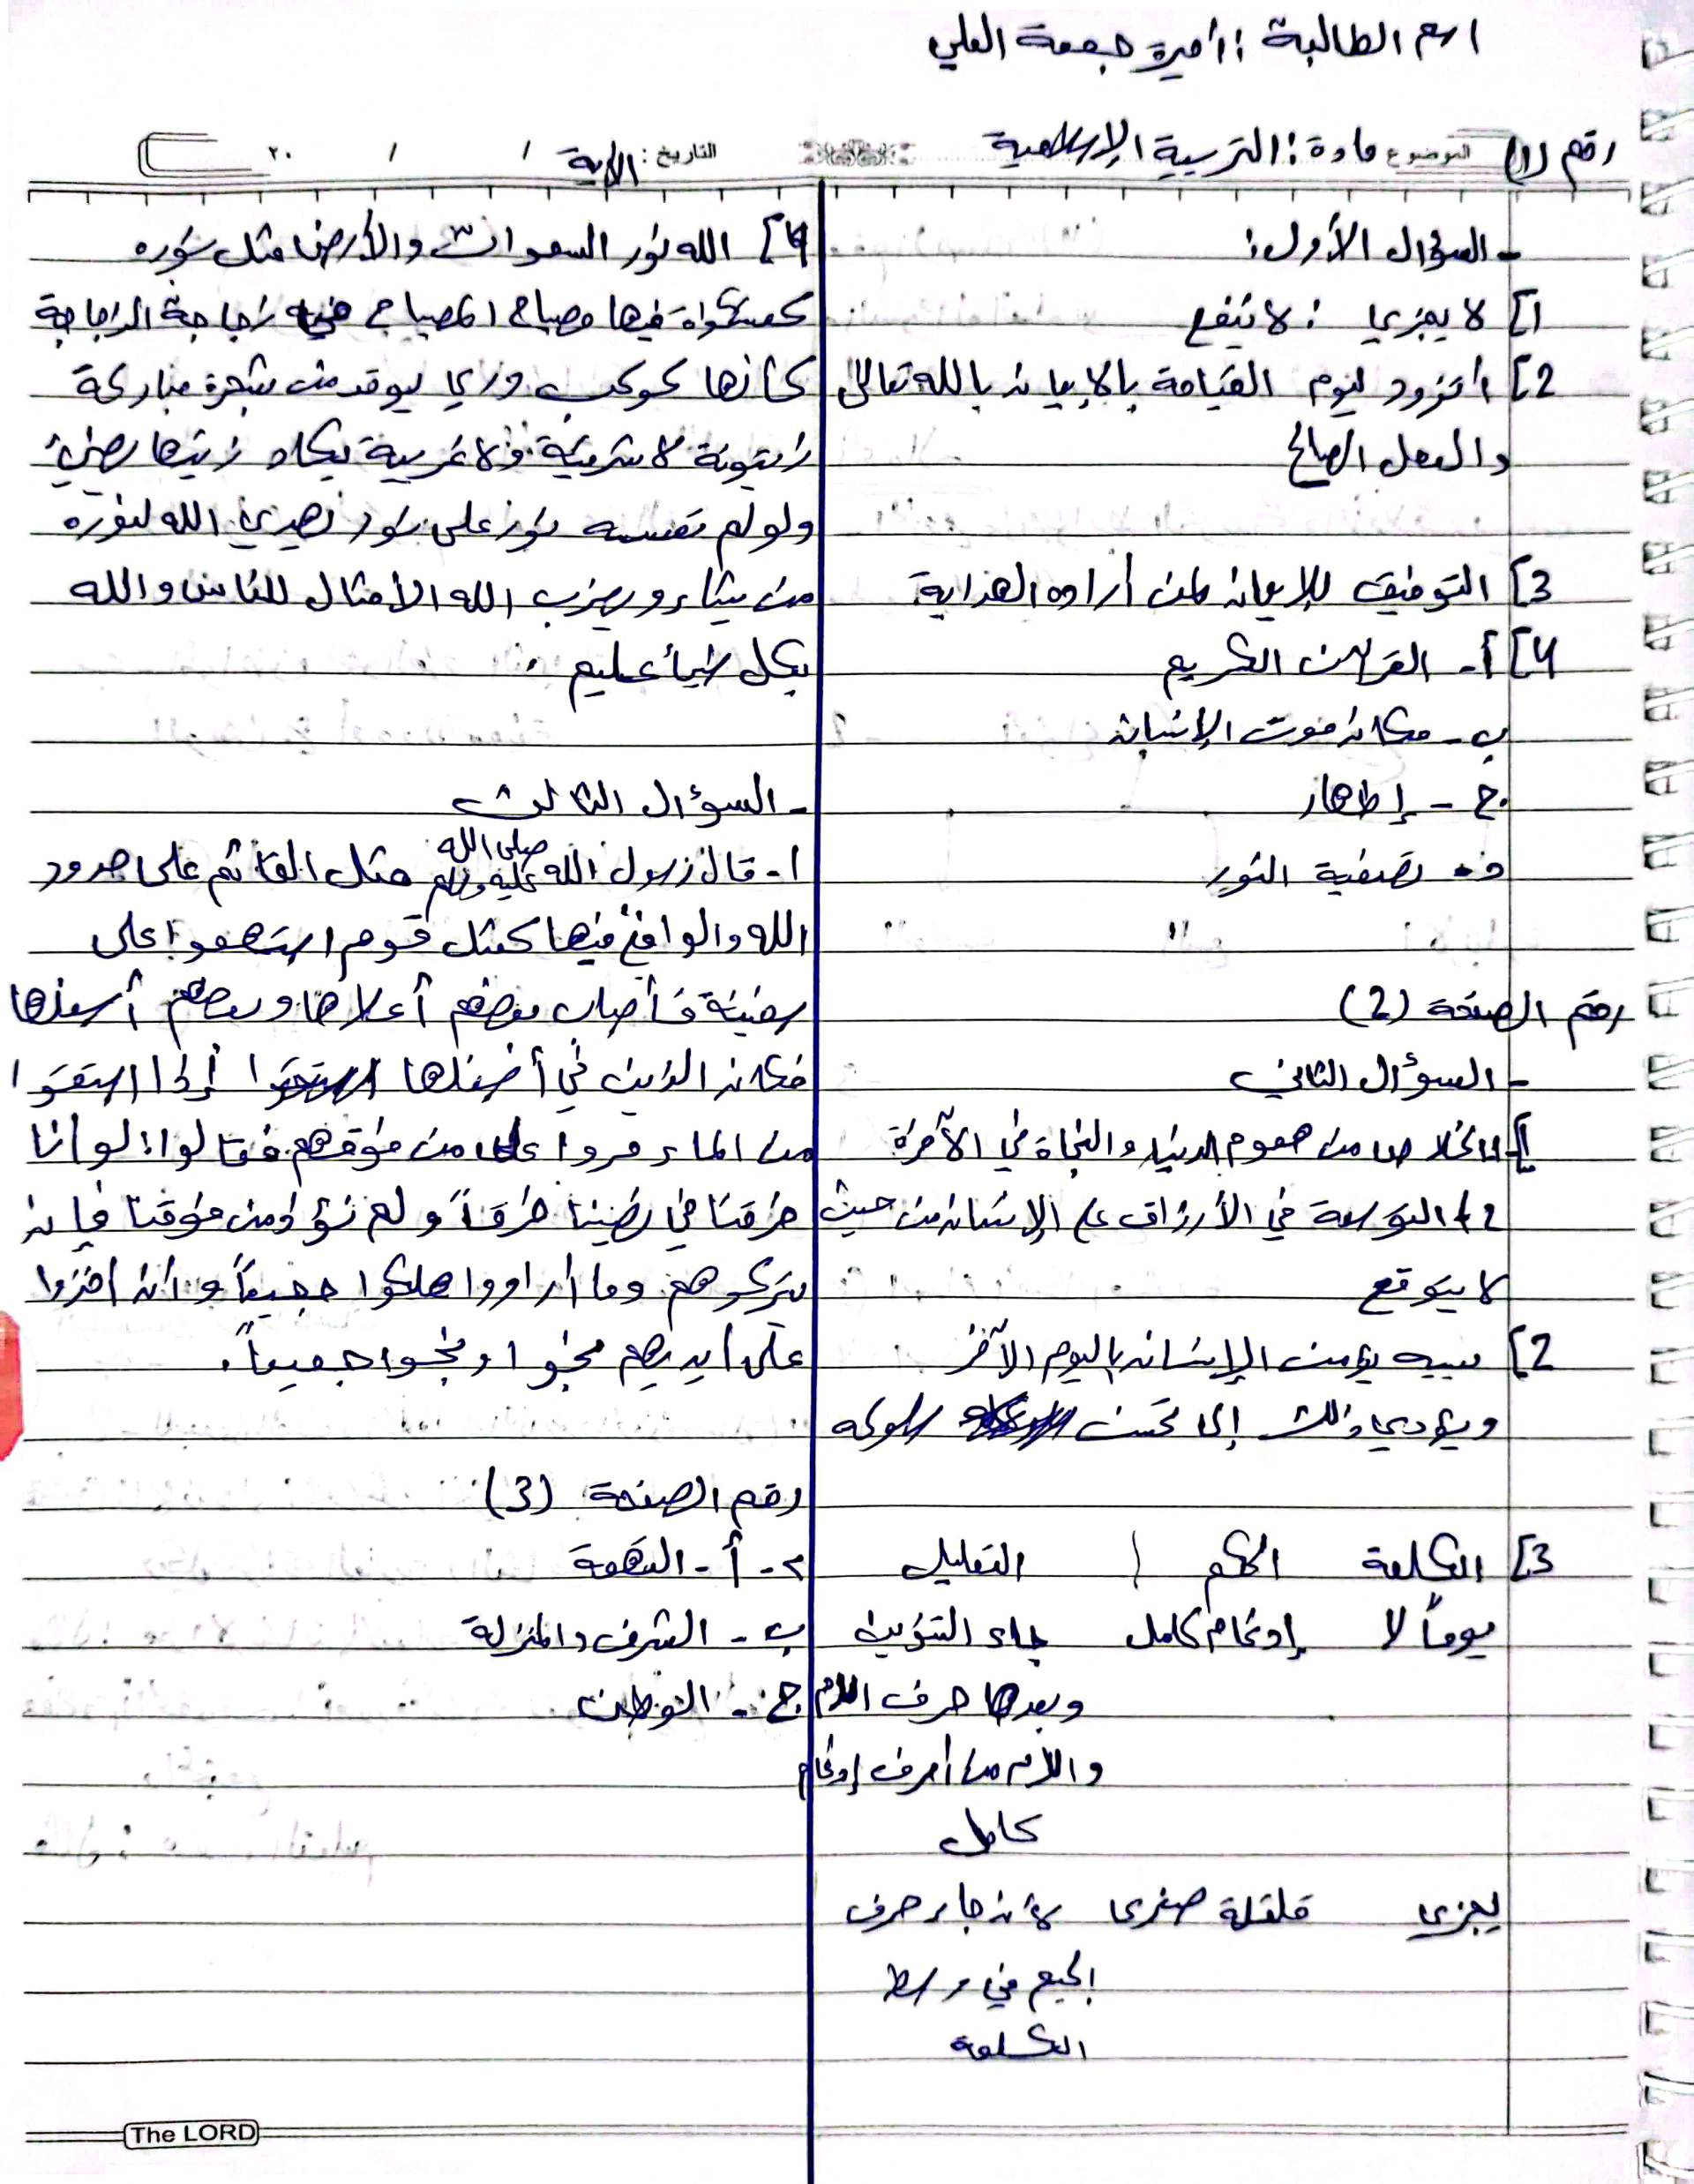 اسم الطالبة : أميرة جمعة العلي
رقم (1) الموضوع مادة : التربية الإسلامية
التاريخ : / / ٢٠
الآية
- السؤال الأول :
1] لا يجزي : لا ينفع
2] أتزود ليوم القيامة بالإيمان بالله تعالى
والعمل الصالح
3] التوفيق للإيمان لمن أراده الهداية.
4] أ- القرآن الكريم
ب- مكان موت الإنسان
ج- إظهار
د- تصفية النور
رقم الصفحة (2)
- السؤال الثاني
1] 1) الخلاص من هموم الدنيا والنجاة في الآخرة
2) التوسعة في الأرزاق على الإنسان من حيث
لا يتوقع
2] سببه يؤمن الإنسان باليوم الآخر
ويؤدي ذلك إلى تحسن سلوكه
3] الكلمة الحكم التعليل
يوماً لا إدغام كامل جاء التنوين
وبعدها حرف اللام
واللام من أحرف إدغام
كامل
يجزي قلقلة صغرى لأن جاء حرف
الجيم في وسط
الكلمة
4] الله نور السموات والأرض مثل نوره
كمشكواة فيها مصباح المصباح في زجاجة الزجاجة
كأنها كوكب دري يوقد من شجرة مباركة
زيتونة لا شرقية ولا غربية يكاد زيتها يضيئ
ولو لم تمسسه نور على نور يهدي الله لنوره
من يشاء ويضرب الله الأمثال للناس والله
بكل شيأ عليم .
- السوؤال الثالث
1- قال رسول الله صلى الله عليه وسلم مثل القائم على حدود
الله والواقع فيها كمثل قوم استهموا على
سفينة فأصاب بعضهم أعلاها وبعضهم أسفلها
فكان الذين في أسفلها إذا استقوا
من الماء مروا على من فوقهم فقالوا: لو أنا
خرقنا في نصيبنا خرقاً ولم نؤذ من فوقنا فإن
يتركوهم وما أرادوا هلكوا جميعاً وأن أخذوا
على أيديهم نجوا ونجوا جميعاً .
رقم الصفحة (3)
2- أ- التهمة
ب- الشرف والمنزلة
ج- الوطن
The LORD